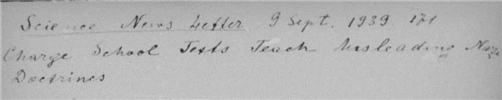 Science News Letter 9 Sept. 1939. 171
Charge School Texts Teach Misleading Nazi
Doctrines